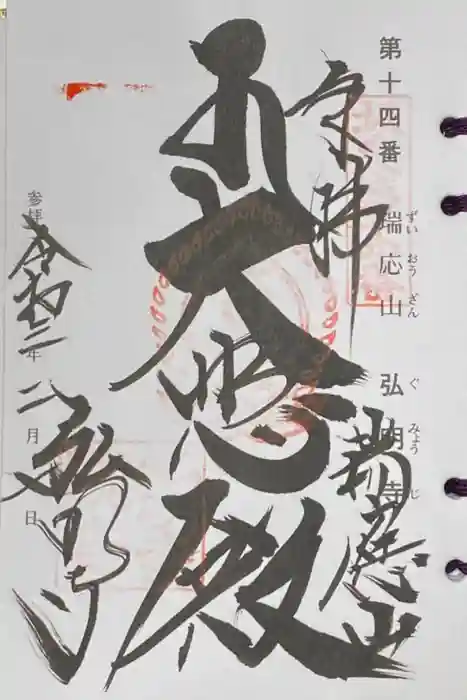 第十四番 瑞応山 弘明寺
ずいおうざん ぐみょうじ
奉拝
瑞應山
大悲殿
参拝
令和三年
八月
日
弘明寺